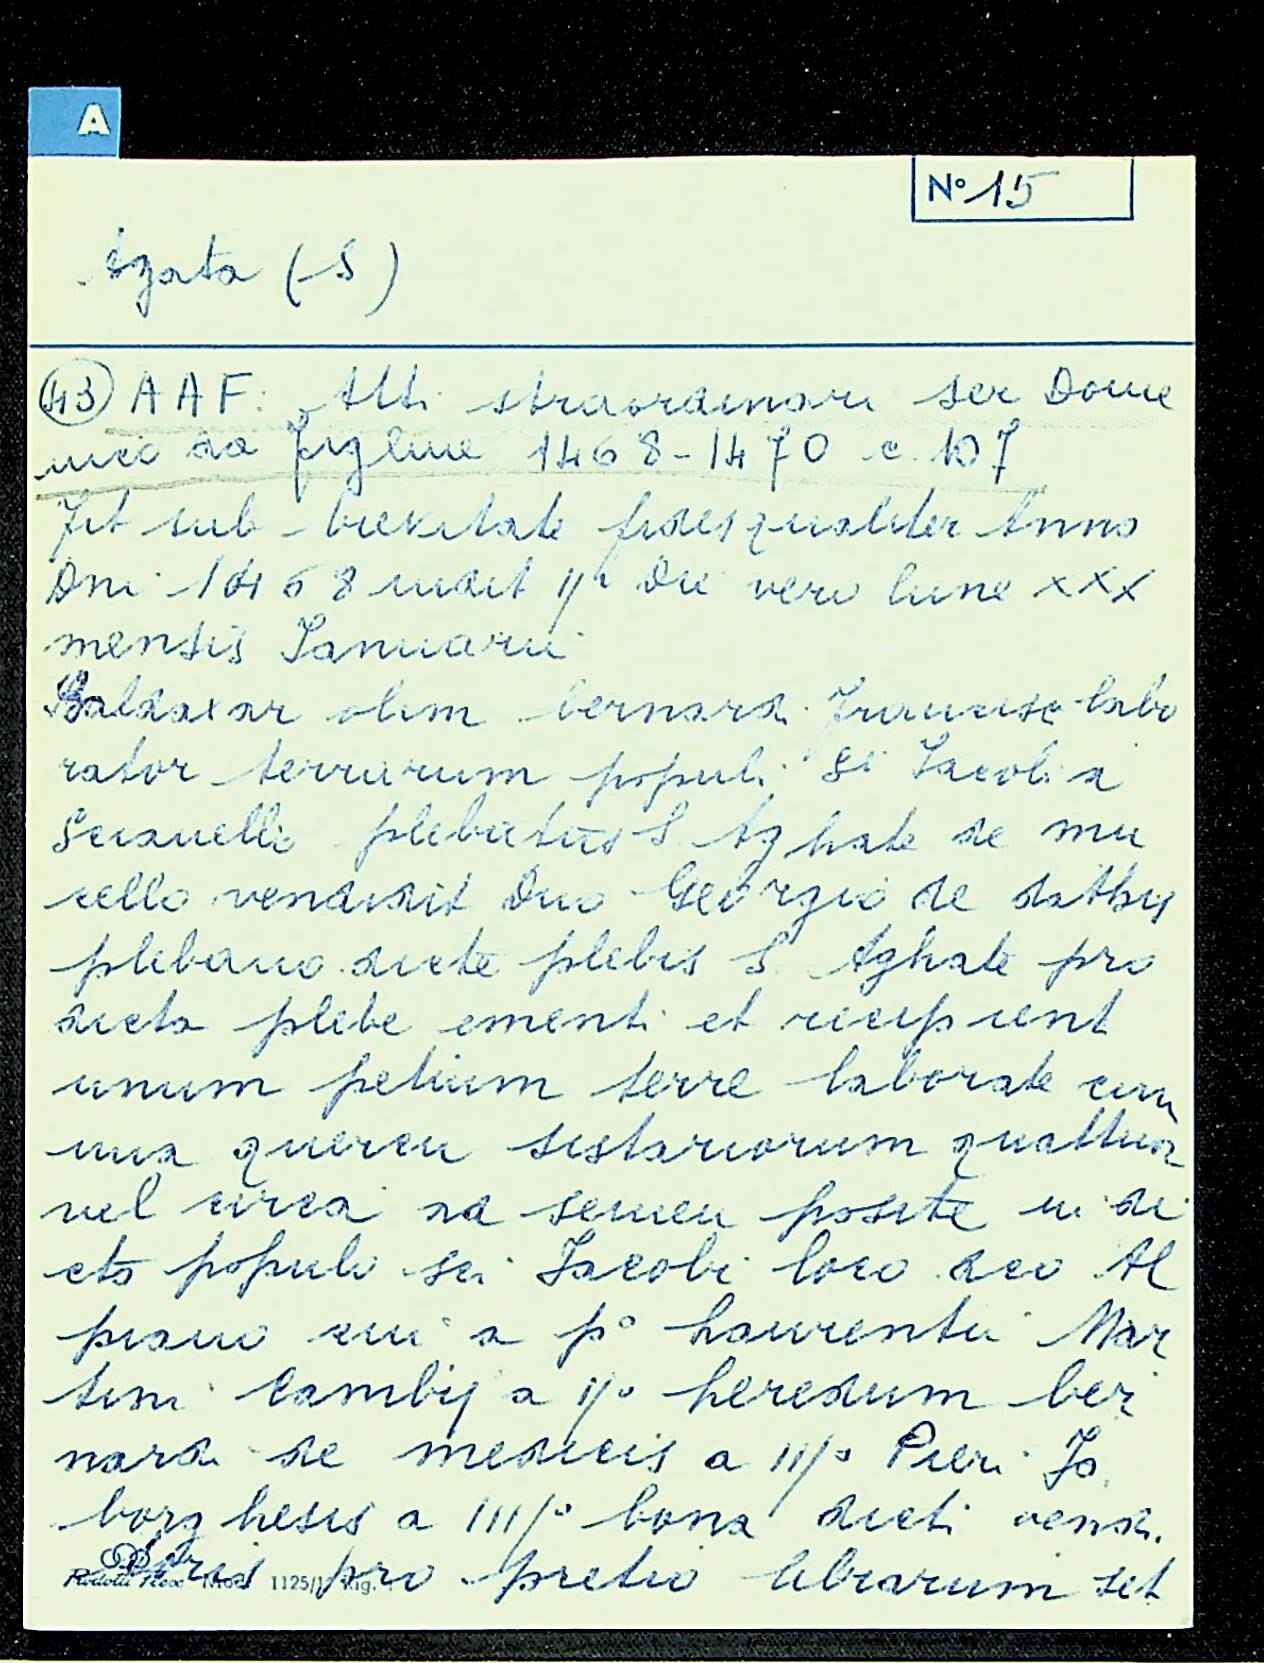 A
Nº 15
Agata (S)
(43) AAF: Atti straordinari ser Dome
nico da Figline 1468-1470 c. 107
Fit sub brevitate fides qualiter Anno
Dni 1468 indit IIª Die vero lune XXX
mensis Ianuarii
Baldaxar olim bernardi Francisci labo
rator terrarum populi Sci Iacobi a
Scianelli plebatus S. Aghate de mu
cello vendidit Dno Georgio de dathis
plebano dicte plebis S. Aghate pro
dicta plebe ementi et recipient
unum petium terre laborate cum
una quercu sistariorum quattuor
vel circa ad semen posite in di
cto populo sci Iacobi loco dco Al
piano cui a pº Laurentii Mar
tini Cambij a IIº heredum ber
nardi de medicis a IIIº Pieri Jo.
borghesis a IIIIº bona dicti vend.
toris pro pretio librarum set
1125/